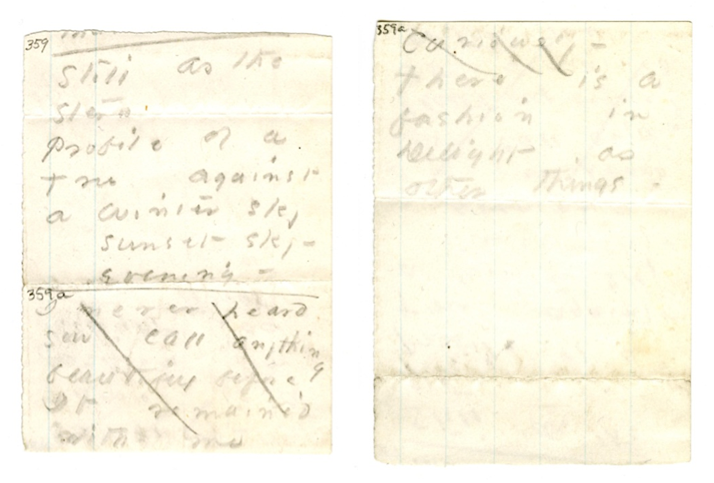 359
Still as the
stern
Profile of a
tree against
a winter sky
sunset sky -
evening -
359a
I never heard
you call anything
beautiful before
It remained
with me
359a
Curiously -
there is a
fashion in
delight as
other things -